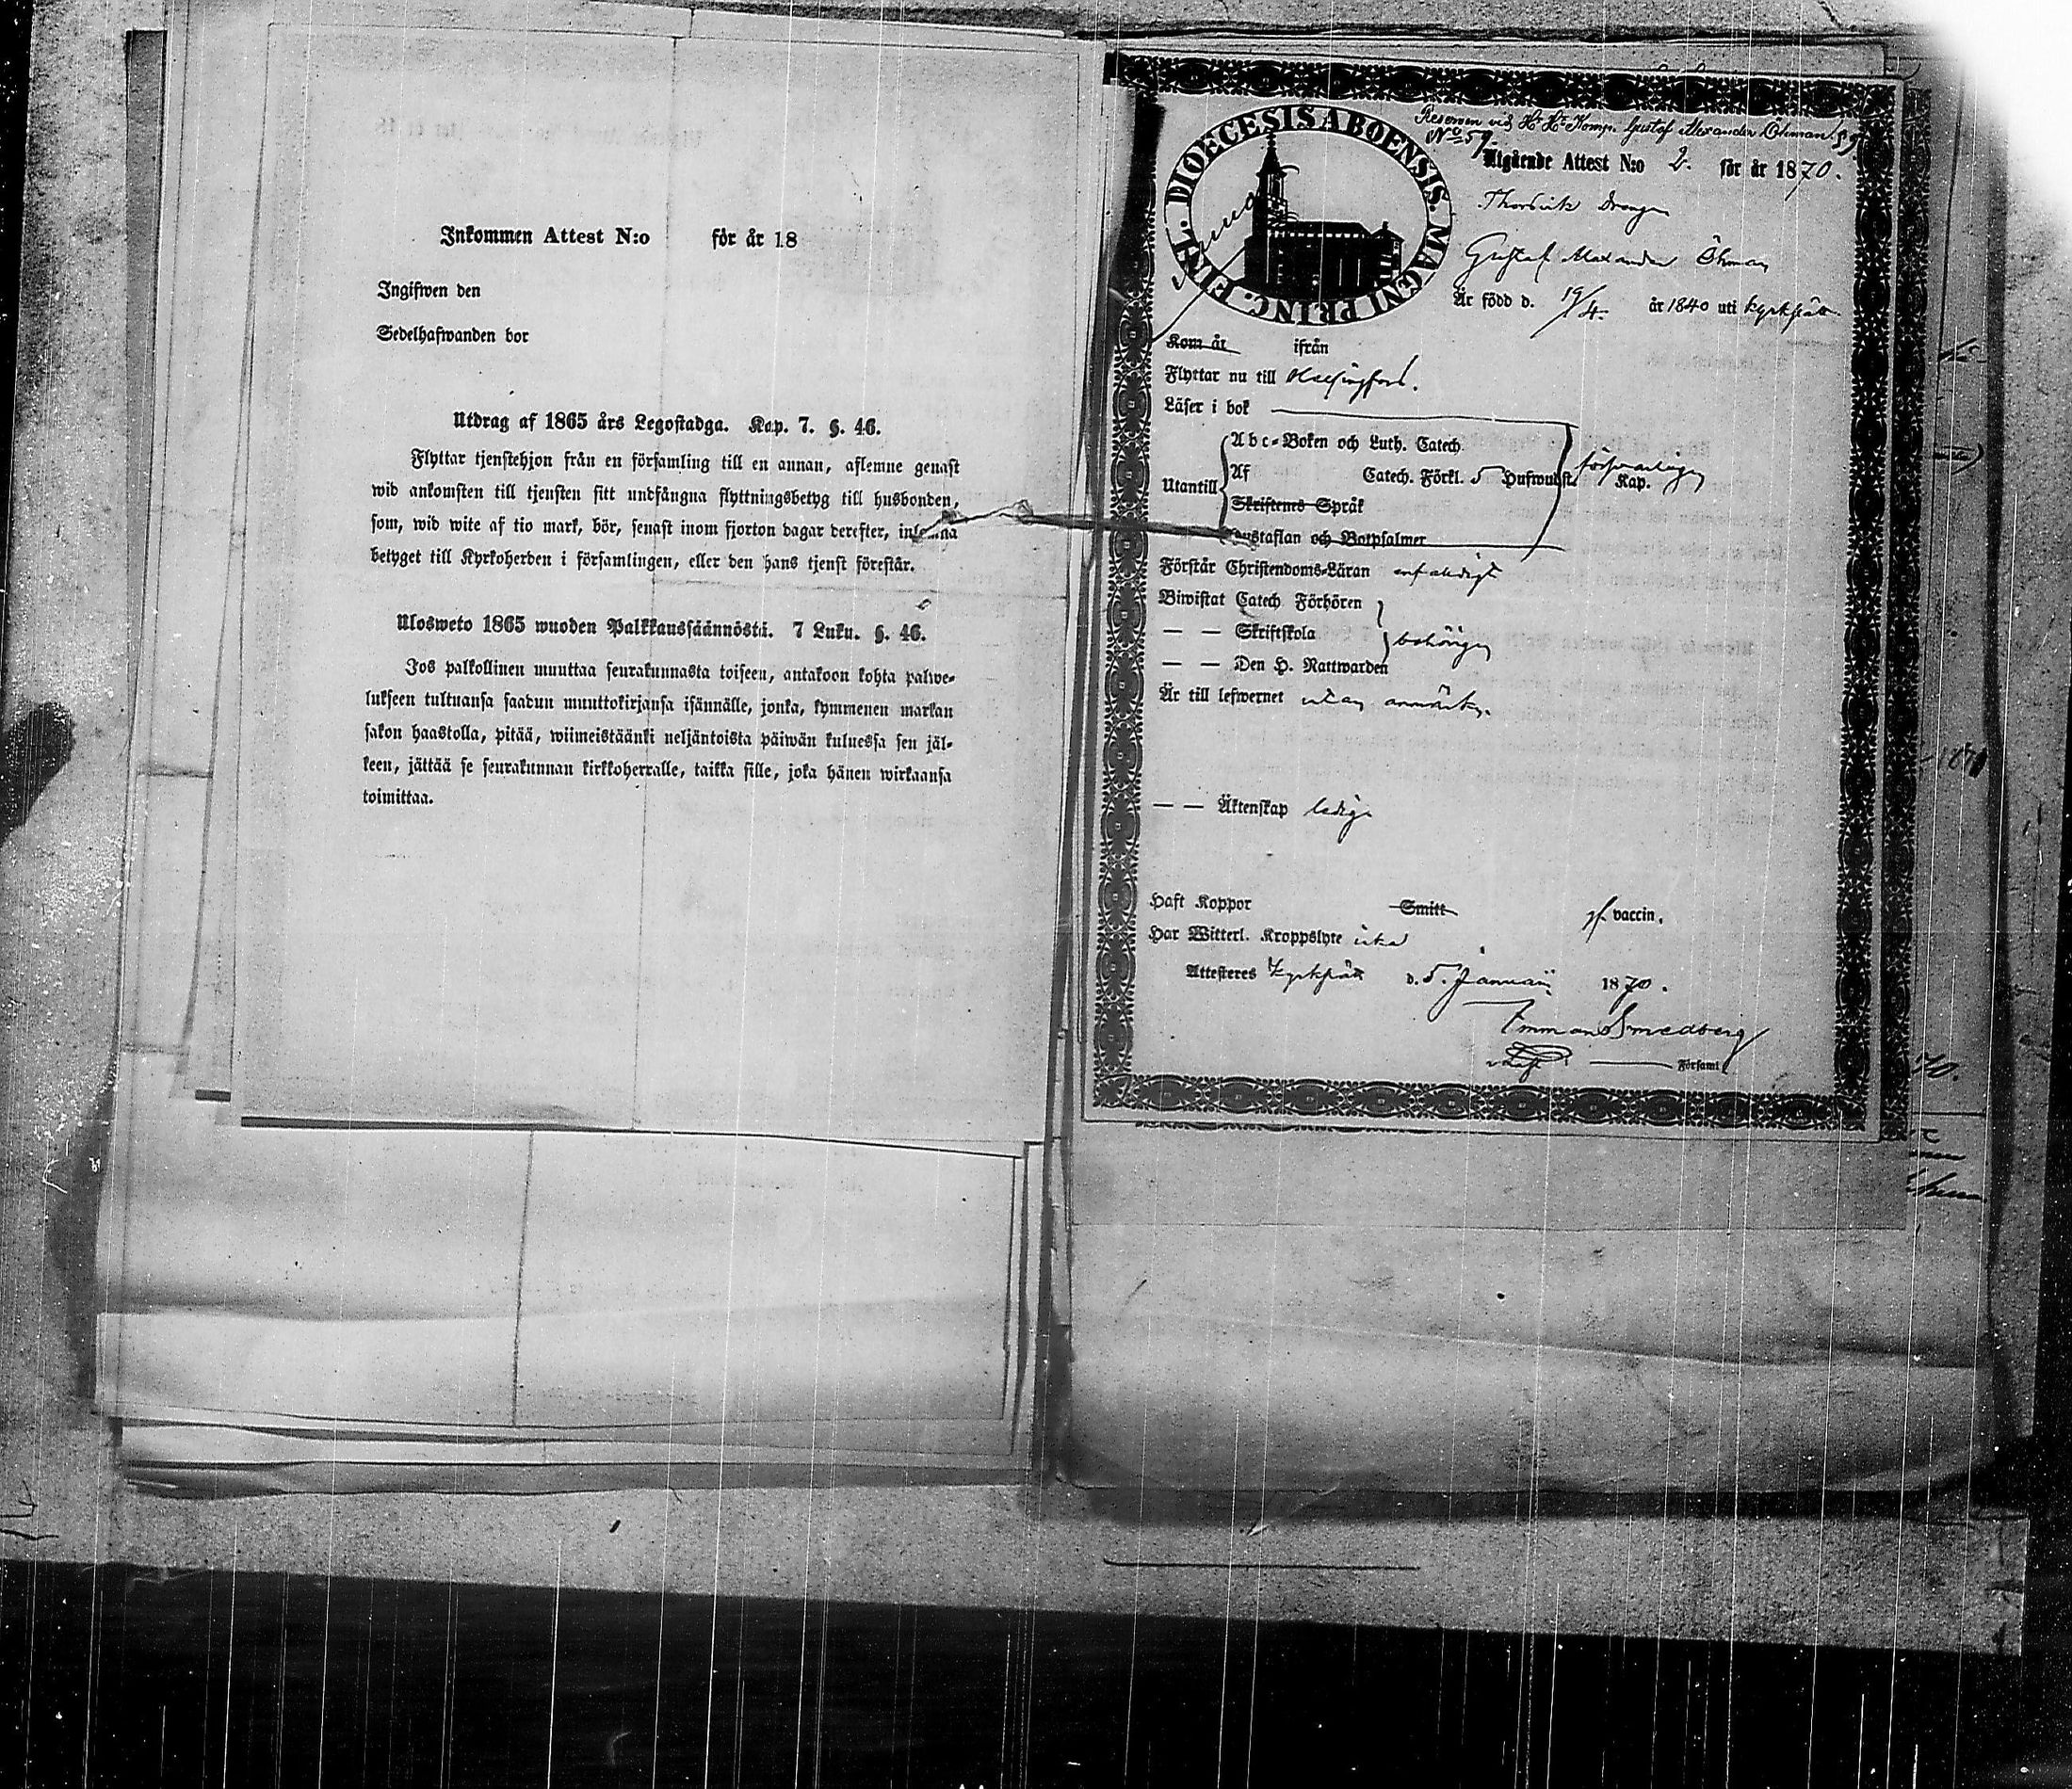 Inkommen Attest N:o för år 18
Ingifwen den
Sedelhafwanden bor
Utdrag af 1865 års Legostadga. Kap. 7. §. 46.
Flyttar tjenstehjon från en församling till en annan, aflemne genast
wid ankomsten till tjensten sitt undfångna flyttningsbetyg till husbonden,
som, wid wite af tio mark, bör, senast inom fjorton dagar derefter, inlemna
betyget till Kyrkoherden i församlingen, eller den hans tjenst förestår.
Ulosweto 1865 wuoden Palkkaussäännöstä. 7 Luku. §. 46.
Jos palkollinen muuttaa seurakunnasta toiseen, antakoon kohta palwe-
lukseen tultuansa saadun muuttokirjansa isännälle, jonka, kymmenen markan
sakon haastolla, pitää, wiimeistäänki neljäntoista päiwän kuluessa sen jäl-
keen, jättää se seurakunnan kirkkoherralle, taikka sille, joka hänen wirkaansa
toimittaa.
DIOECESIS ABOENSIS. MAGNI PRINC. FINL.
Reserven vid Komp. Gustaf Alexander Öhman 59.
No 59
Utgående Attest N:o 2. för år 1870.
Thorsvik Dräng
Gustaf Alexander Öhman
Är född d. 19/4. år 1840 uti Kyrkslätt
Kom år ifrån
Flyttar nu till Helsingfors.
Läser i bok
Utantill
Abc-Boken och Luth. Catech.
Af Catech. Förkl. 5 Hufwudst. Kap.
församlingen
Skriftens Språk
Hustaflan och Botpsalmer
Förstår Christendoms-Läran enfaldigt
Biwistat Catech Förhören
— — Skriftskola
behörigen
— — Den H. Nattwarden
Är till lefwernet utan anmärkn.
— — Äktenskap ledig
Haft Koppor Smitt gf. vaccin.
Har Witterl. Kroppslyte icke
Attesteras Kyrkslätt d. 5 Januari 1870.
Emman Smedberg
Församl.